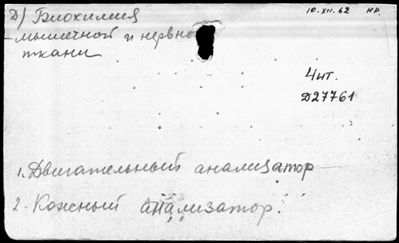 Д) Биохимия 10.XII.62 НР.
мышечной и нервно
ткани
4 шт.
D27761
1. Двигательный анализатор
2. Кожный анализатор.